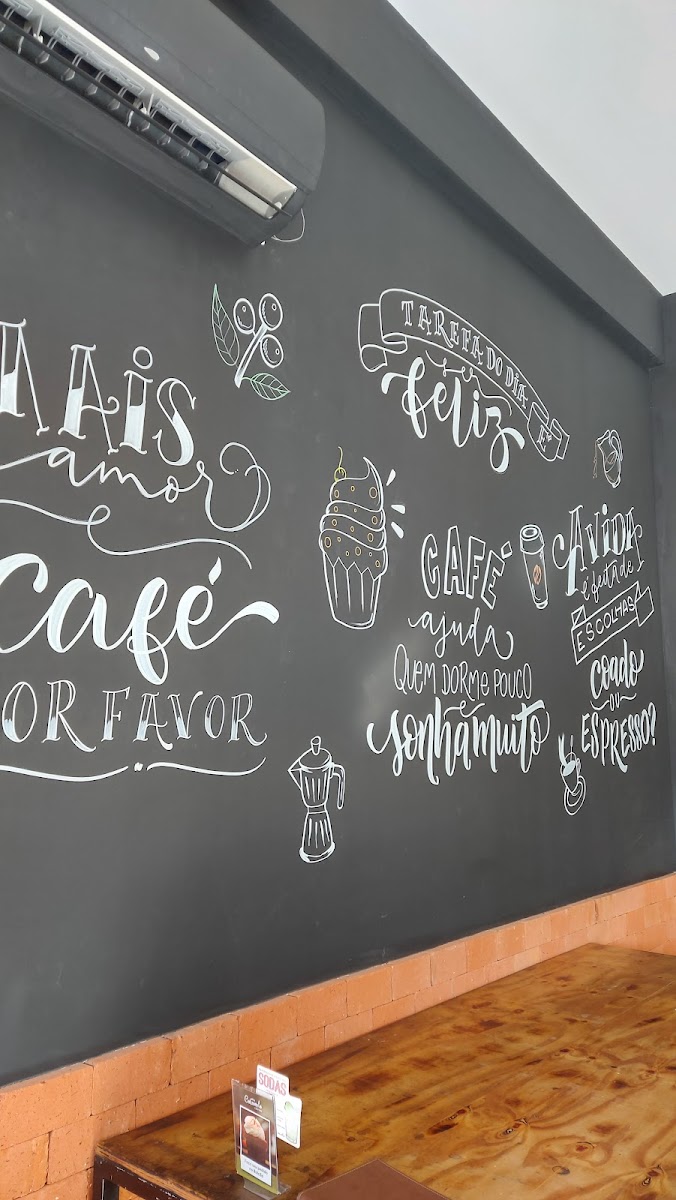 MAIS
amor
café
POR FAVOR
TAREFA DO DIA
SER
feliz
CAFÉ
ajuda
QUEM DORME POUCO
e
sonha muito
A VIDA
é feita de
ESCOLHAS
coado
ou
ESPRESSO?
SODAS